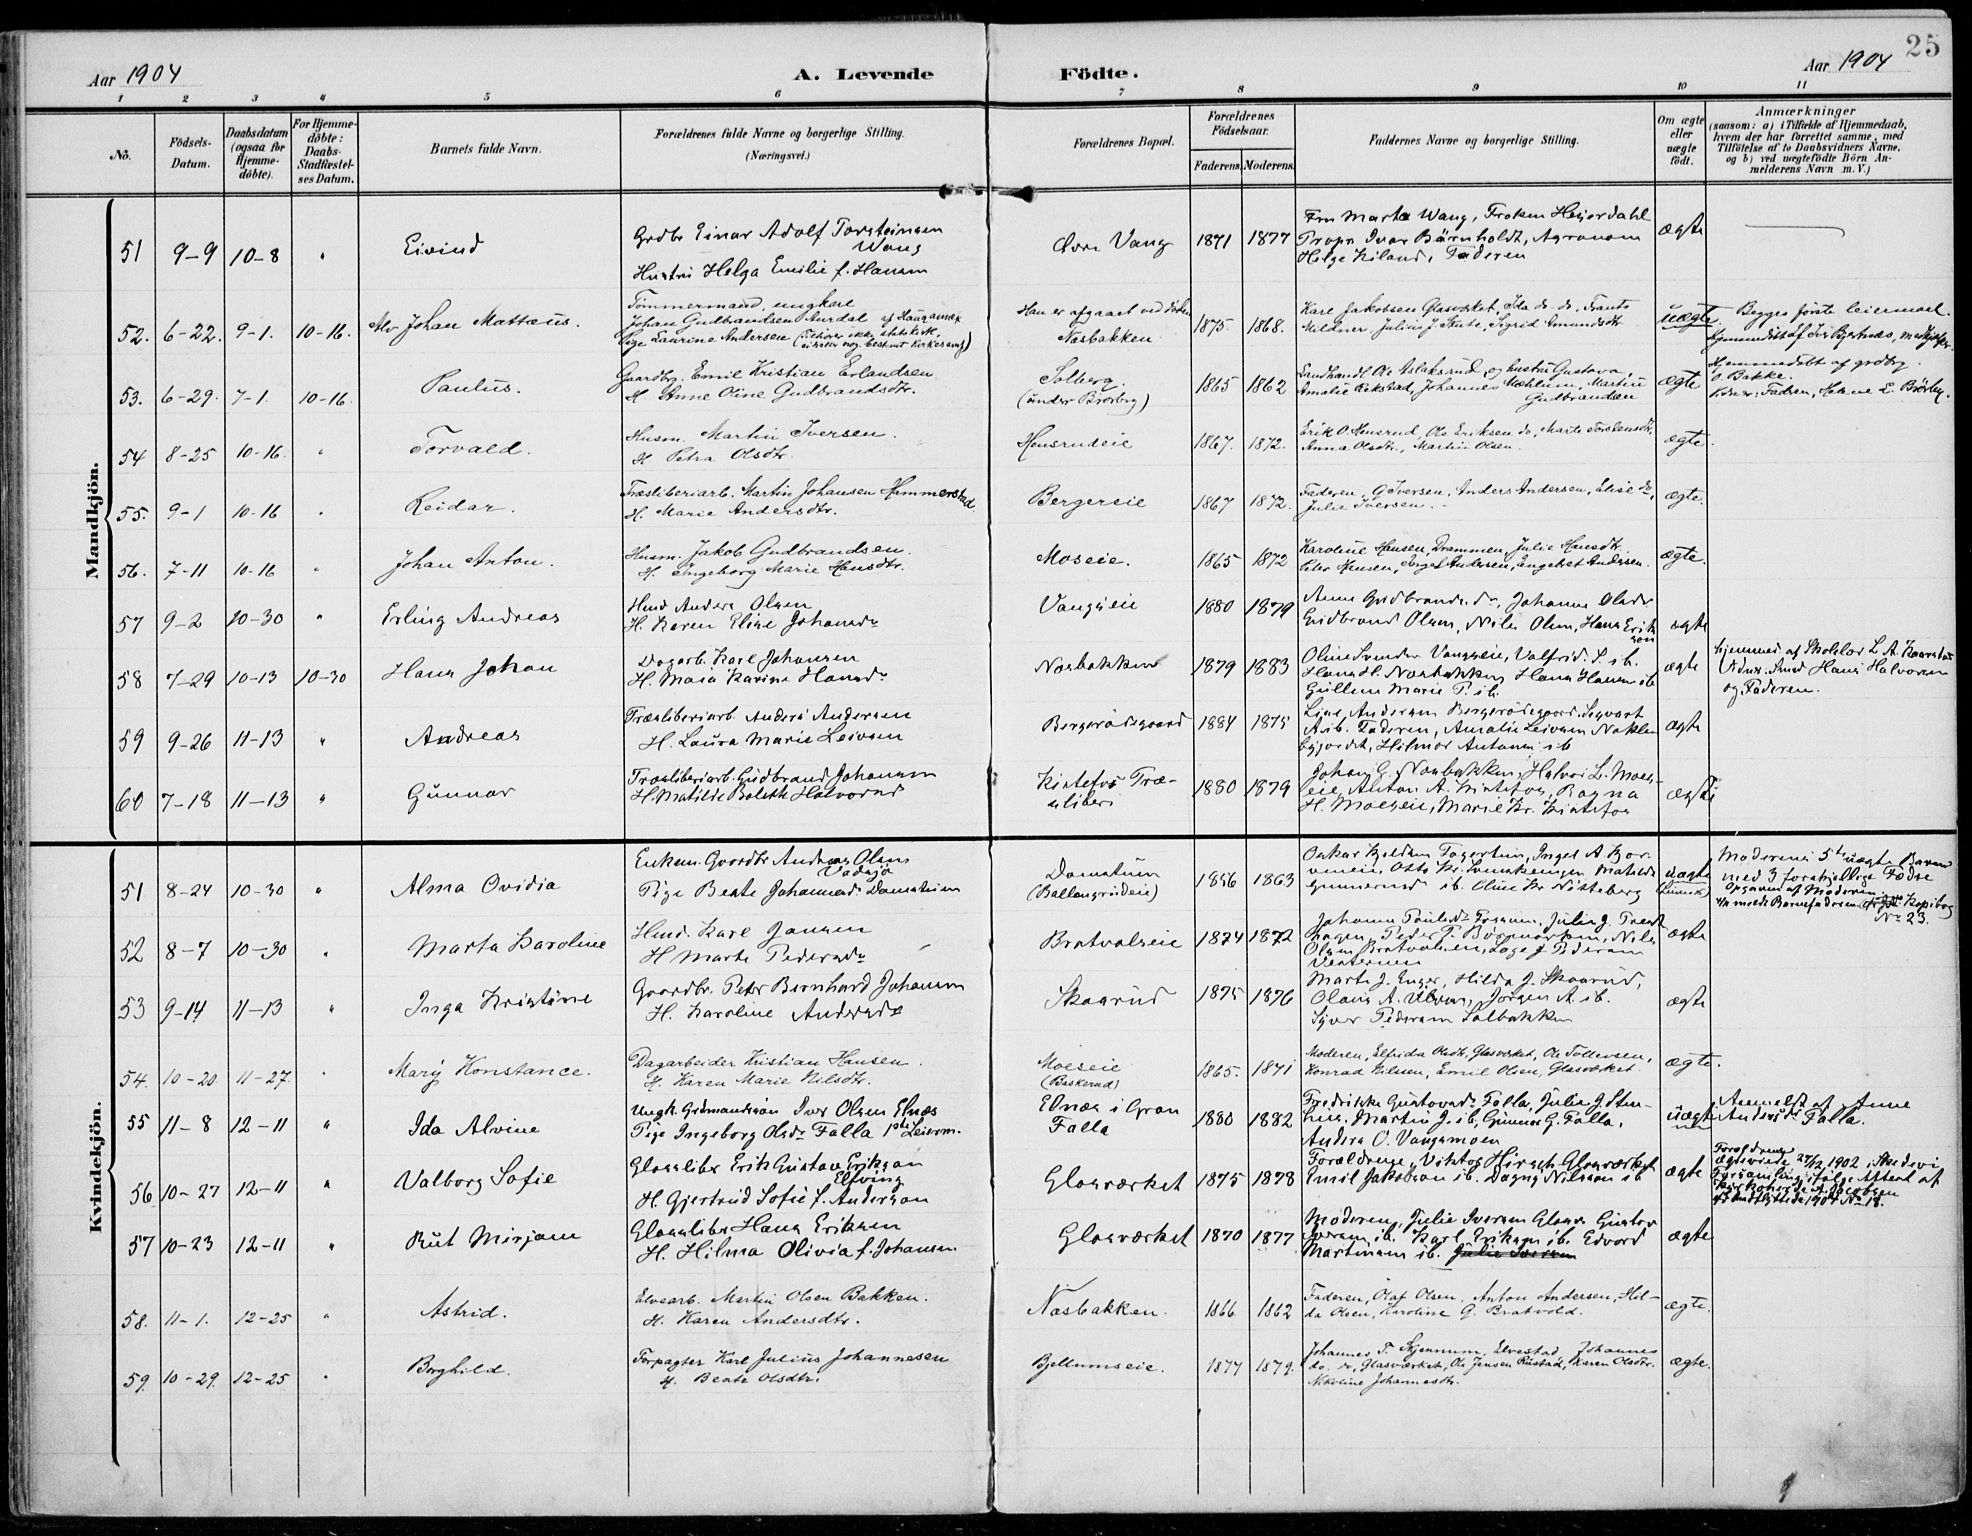 25
Aar 1904
A. Levende Födte.
Aar 1904
1 2 3 4 5 6 7 8 9 10 11
No.
Födsels-Datum.
Daabsdatum (ogsaa for Hjemme-döbte).
For Hjemme-döbte: Daabs-Stadfæstel-ses Datum.
Barnets fulde Navn.
Forældrenes fulde Navne og borgerlige Stilling.
(Næringsvei.)
Forældrenes Bopæl.
Forældrenes Födselsaar.
Faderens. Moderens.
Faddernes Navne og borgerlige Stilling.
Om ægte eller uægte födt.
Anmærkninger
(saasom: a) i Tilfælde af Hjemmedaab,
hvem der har forrettet samme, med
Tilföielse af to Daabsvidners Navne,
og b) ved uægtefödte Börn An-
melderens Navn m. V.)
Mandkjön.
51 9-9 10-8 " Eivind
Grdbr Einar Adolf Torsteinsen
Wang
Hustru Helga Emilie f. Hansen
Øvre Vang 1871 1877
Fru Marta Wang, Frøken Heierdahl
Propr Ivar Børnholdt, Agronom
Helge Kiland, Faderen
ægte
52. 6-22. 9-1. 10-16. Johan Mattæus.
Tømmermand, ungkarl
Johan Gudbrandsen Aurdal
Pige Laurine Andersen
Næsbakken 1875. 1868.
Karl Jakobsen Glasværket, Ida do. do, Frants
Meldner, Julius J. Skute, Sigrid Amundsdtr.
uægte.
Begges første leiermaal.
53. 6-29. 7-1. 10-16. Paulus.
Gaardbr. Emil Kristian Erlandsen
H. Anne Oline Gudbrandsdtr.
Solberg.
(under Brørby)
1865 1862
Landhandl. Ole Aslaksrud og hustru Gustava,
Amalie Rekstad, Johannes Mæhlum, Martin
Gudbrandsen
ægte
Hjemmedøbt af grdbr.
O. Bakke.
Vidner: Fadren, Helene E. Brørby.
54 8-25 10-16. " Torvald.
Husm. Martin Iversen.
H. Petra Olsdtr.
Hensrudeie 1867. 1872.
Erik O. Hensrud, Ole Eriksen do, Marte Torstensdtr,
Anna Olsdtr, Martin Olsen.
ægte.
55. 9-1 10-16 " Reidar.
Træsliberiarb. Martin Johansen Hammerstad.
H. Marie Andersdtr.
Bergereie 1867 1872.
Faderen, G. Iversen, Anders Andersen, Elise do,
Julie Iversen.
ægte.
56. 7-11 10-16 " Johan Anton.
Husm. Jakob Gudbrandsen.
H. Ingeborg Marie Hansdtr.
Moseie. 1865 1872
Karoline Hansen, Drammen, Julie Hansdtr.
Peter Hansen, Ingel Andersen, Engebret Andersen.
ægte.
57 9-2 10-30 " Erling Andreas
Hmd Anders Olsen
H. Karen Elise Johansdr
Vangseie 1880 1879
Anne Gudbrandsdr, Johanne Olsdr
Gudbrand Olsen, Nils Olsen, Hans Erik
sen
ægte
58 7-29 10-13 10-30 Hans Johan
Dagarb. Karl Johansen
H. Maia Karine Hansdr
Næsbakken 1879 1883
Oline Svendsr Vangseie, Valfrid S. ib.
Hans H. Næsbakken, Hans Hansen ib
Gullena Marie P. ib.
ægte
Vidner: Smed Hans Halvorsen
og Faderen.
59 9-26 11-13 " Andreas
Træsliberiarb. Anders Andersen
H. Laura Marie Leivsen
Bergerødsgaard 1884 1875
Lise Andersen Bergerødsgaard, Sigvart
A. ib. Faderen, Amalie Leivsen Nokle
byjordet, Hilmar Antonsen ib
ægte
60 7-18 11-13 " Gunnar
Træsliberiarb. Gudbrand Johansen
H. Matilde Bolette Halvorsd
Kistefos Træ-
sliberi
1880 1879
Johan G. Næsbakken, Halvor L. Moes-
eie, Anton A. Kistefos, Ragna
H. Moeseie, Marie Kr. Kistefos
ægte
Kvindekjön.
51 8-24 10-30 " Alma Ovidia
Enkem. Gaardbr Andreas Olsen
Pige Beate Johannesdr Damstuen
Damstuen
(Ballangrudeie)
1856 1863
uægte
Moderens 5te uægte Barn
med 3 forskjellige Fædre
Opgaven af Moderen.
No 23.
52 8-7 10-30 " Marta Karoline
Hmd. Karl Jansen
H Marte Pedersdr
Bratvalseie 1874 1872
ægte
53 9-14 11-13 " Inga Kristine
Gaardbr. Peter Bernhard Johansen
H. Karoline Andersdr
Skaarud 1875 1876
Marte J. Enger, Hilda J. Skaarud,
Olaus A. Ulven, Jörgen A. ib.
Syver Pedersen Solbakken
ægte
54. 10-20 11-27. " Mary Konstance.
Dagarbeider Kristian Hansen.
H. Karen Marie Nilsdtr.
Moeseie
(Baskerud)
1865. 1871
Moderen, Elfrida Olsdtr, Glasværket, Ole Tollevsen,
Konrad Nilssen, Emil Olsen, Glasværket.
ægte.
55 11-8 12-11 " Ida Alvine
Ungk. Grdmandssön Iver Olsen Elnæs
Pige Ingeborg Olsdr Falla 1ste Leierm.
Elnæs i Gran
Falla
1880 1882
Fredrikke Gustavsdr Falla, Julie J. Sten-
hus, Martin J. ib, Gunnar G. Falla,
Anders O. Vangsmoen
uægte
Anmeldt af Anne
Andersdr Falla.
56 10-27 12-11 " Valborg Sofie
Glassliber Erik Gustav Erikson
Elfving
H. Gjertrud Sofie f. Anderson
Glasværket 1875 1878
Forældrene, Viktor Hirsch Glasværket
Emil Jakobson ib. Dagny Nilsson ib
ægte
Forældrene
ægteviede 27/12 1902, Skedevi
57 10-23 12-11 " Rut Mirjam
Glassliber Hans Eriksen
H. Hilma Olivia f. Johansen
Glasværket 1870 1877
Moderen, Julie Iversen Glasv. Gustav
Iversen ib. Karl Eriksen ib. Edvard
Martinsen ib. Julie Iversen
ægte
58. 11-1. 12-25 " Astrid.
Elvearb. Martin Olsen Bakken.
H. Karen Andersdtr.
Næsbakken. 1866 1862
Faderen, Olaf Olsen, Anton Andersen, Hel-
da Olsen, Karoline G. Bratvold.
ægte.
59. 10-29. 12-25 " Borghild.
Forpagter Karl Julius Johannesen
H. Beate Olsdtr.
Bjellumseie. 1877 1879.
Johannes T. Skjennum, Elvestad Johannes
do. do, Glasværket, Ole Jensen Rustad, Karen Olsdtr.
Nikoline Johannesdtr.
ægte.